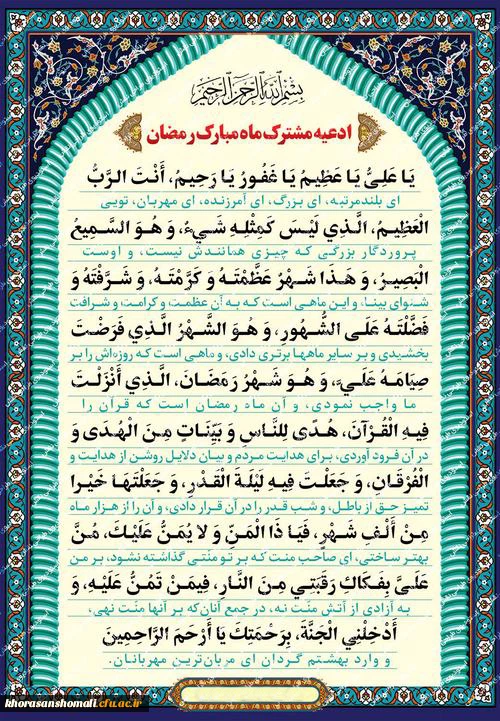 بِسْمِ اللهِ الرَّحْمنِ الرَّحِیمِ
ادعیه مشترک ماه مبارک رمضان
یَا عَلِیُّ یَا عَظِیمُ یَا غَفُورُ یَا رَحِیمُ، أَنْتَ الرَّبُّ
ای بلندمرتبه، ای بزرگ، ای آمرزنده، ای مهربان، تویی
الْعَظِیمُ، الَّذِي لَیْسَ کَمِثْلِهِ شَيْءٌ، وَ هُوَ السَّمِیعُ
پروردگار بزرگی که چیزی همانندش نیست، و اوست
الْبَصِیرُ، وَ هَذَا شَهْرٌ عَظَّمْتَهُ وَ کَرَّمْتَهُ، وَ شَرَّفْتَهُ وَ
شنوای بینا، و این ماهی است که به آن عظمت و کرامت و شرافت
فَضَّلْتَهُ عَلَی الشُّهُورِ، وَ هُوَ الشَّهْرُ الَّذِي فَرَضْتَ
بخشیدی و بر سایر ماهها برتری دادی، و ماهی است که روزه‌اش را بر
صِیَامَهُ عَلَيَّ، وَ هُوَ شَهْرُ رَمَضَانَ، الَّذِي أَنْزَلْتَ
ما واجب نمودی، و آن ماه رمضان است که قرآن را
فِیهِ الْقُرْآنَ، هُدًی لِلنَّاسِ وَ بَیِّنَاتٍ مِنَ الْهُدَی وَ
در آن فرود آوردی، برای هدایت مردم و بیان دلایل روشن از هدایت و
الْفُرْقَانِ، وَ جَعَلْتَ فِیهِ لَیْلَةَ الْقَدْرِ، وَ جَعَلْتَهَا خَیْرًا
تمیز حق از باطل، و شب قدر را در آن قرار دادی، و آن را از هزار ماه
مِنْ أَلْفِ شَهْرٍ، فَیَا ذَا الْمَنِّ وَ لا یُمَنُّ عَلَیْكَ، مُنَّ
بهتر ساختی، ای صاحب منت که بر تو منّتی گذاشته نشود، بر من
عَلَيَّ بِفَکَاكِ رَقَبَتِي مِنَ النَّارِ، فِیمَنْ تَمُنُّ عَلَیْهِ، وَ
به آزادی از آتش منّت نه، در جمع آنان‌که بر آنها منّت نهی،
أَدْخِلْنِي الْجَنَّةَ، بِرَحْمَتِكَ یَا أَرْحَمَ الرَّاحِمِینَ
و وارد بهشتم گردان ای مهربان‌ترین مهربانان.
khorasanshomali.cfu.ac.ir